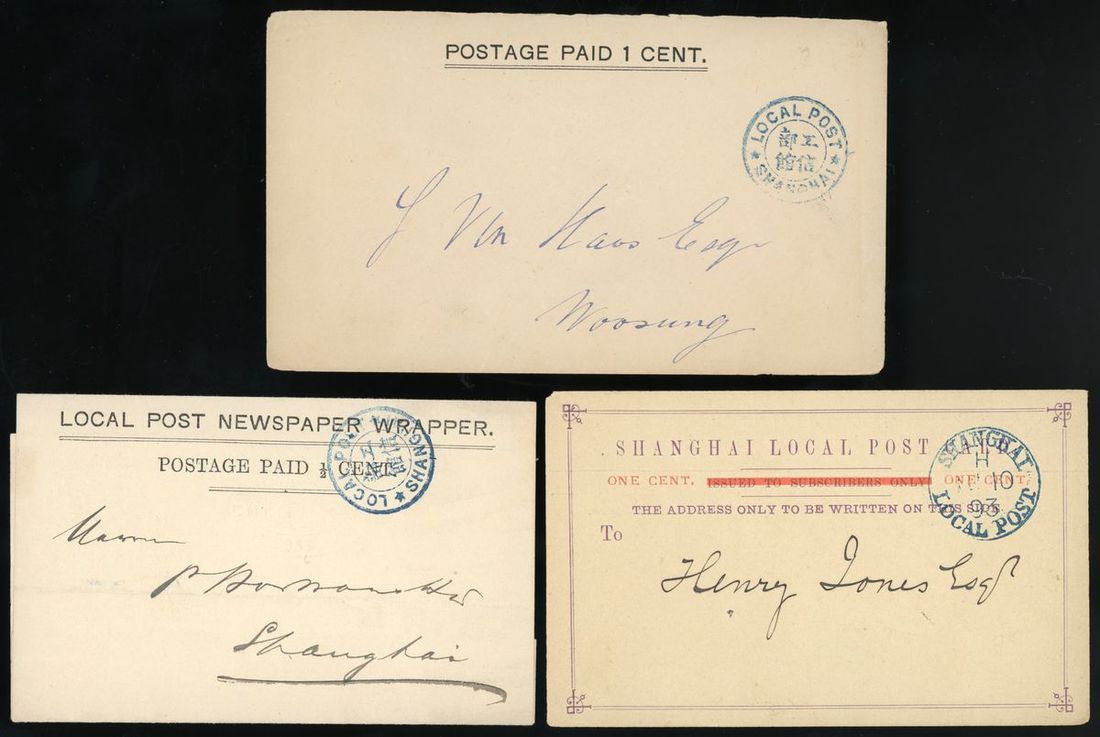 POSTAGE PAID 1 CENT.
LOCAL POST
工部
信館
SHANGHAI
J Von Haas Esqr
Woosung
LOCAL POST NEWSPAPER WRAPPER.
POSTAGE PAID ½ CENT.
LOCAL POST
工部
信館
SHANGHAI
Shanghai
SHANGHAI LOCAL POST
ONE CENT. ISSUED TO SUBSCRIBERS ONLY ONE CENT.
THE ADDRESS ONLY TO BE WRITTEN ON THIS SIDE.
To
SHANGHAI
H
10
93
LOCAL POST
Henry Jones Esqr